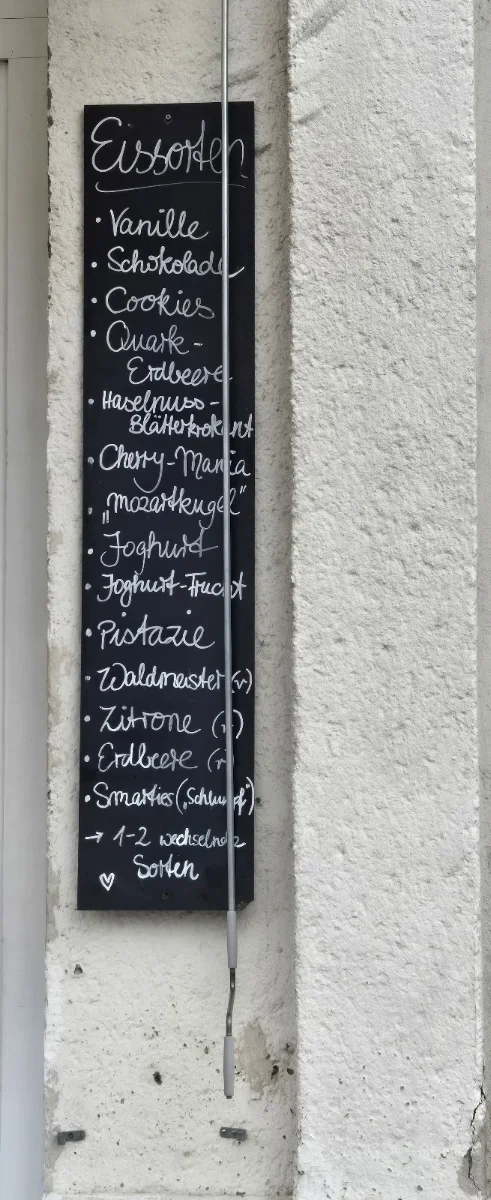 Eissorten
• Vanille
• Schokolade
• Cookies
• Quark-
Erdbeere
• Haselnuss-
Blätterkrokant
• Cherry-Mania
• „Mozartkugel"
• Joghurt
• Joghurt-Frucht
• Pistazie
• Waldmeister (v)
• Zitrone (v)
• Erdbeere (v)
• Smarties („Schlumpf")
→ 1-2 wechselnde
♡ Sorten